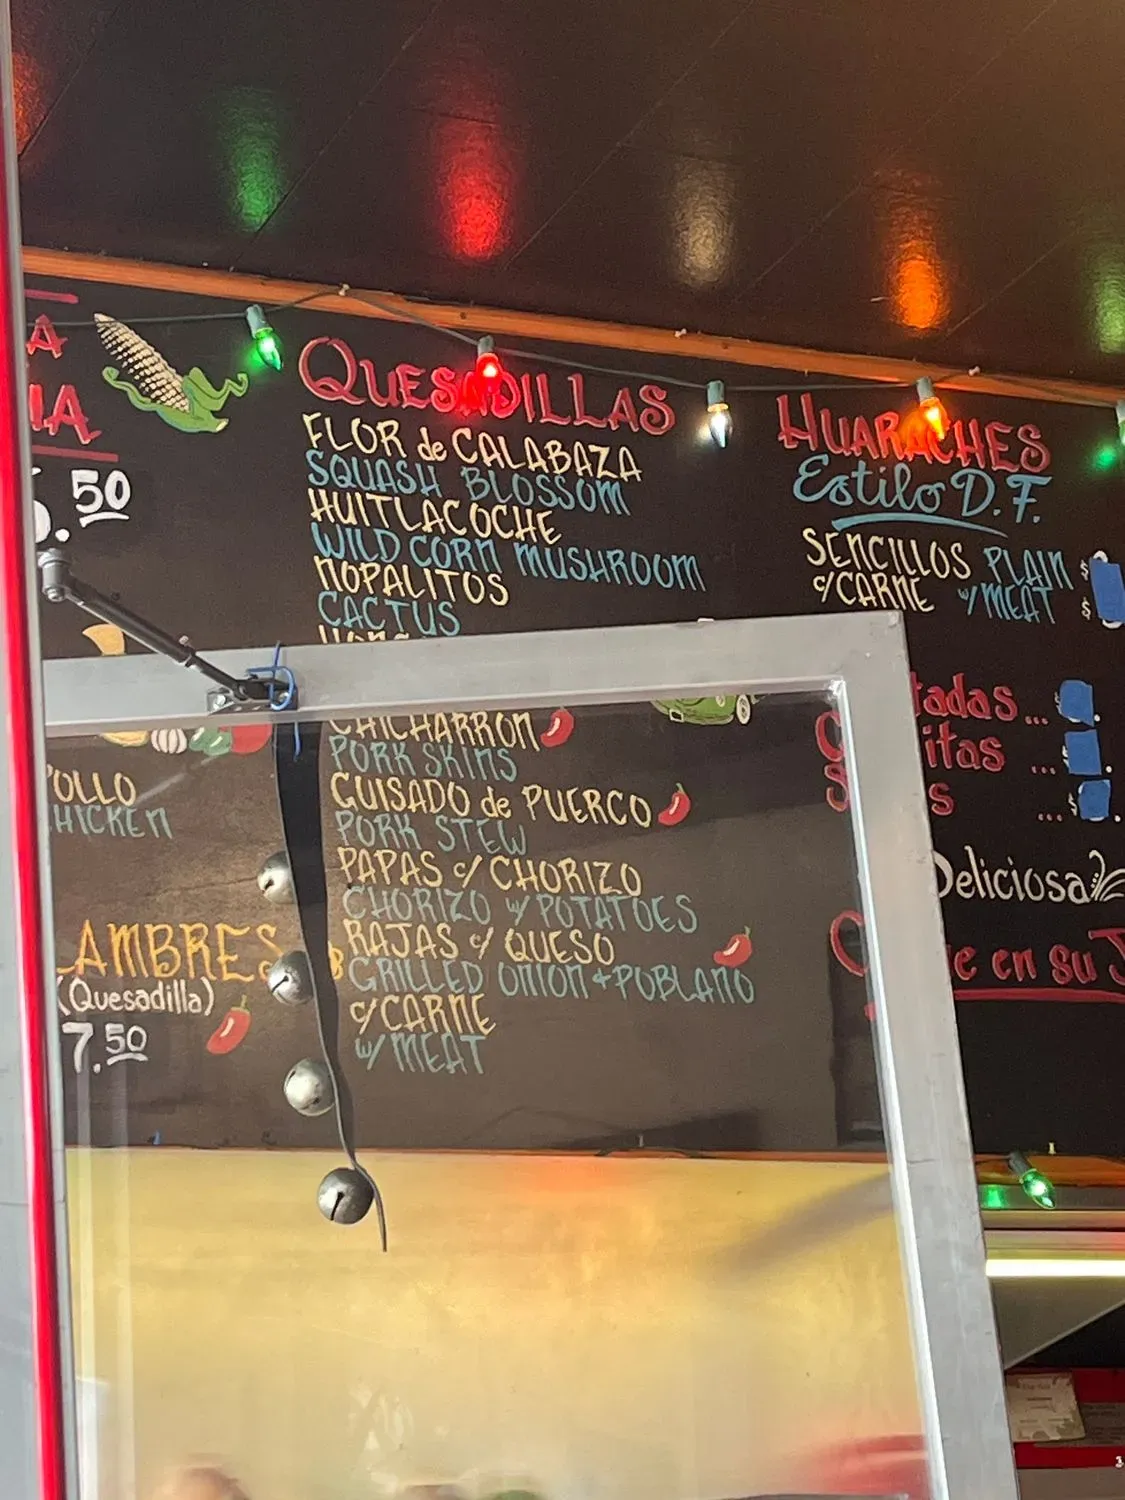 .50
QUESADILLAS
FLOR de CALABAZA
SQUASH BLOSSOM
HUITLACOCHE
WILD CORN MUSHROOM
NOPALITOS
CACTUS
CHICHARRON
PORK SKINS
GUISADO de PUERCO
PORK STEW
PAPAS c/ CHORIZO
CHORIZO w/ POTATOES
RAJAS c/ QUESO
GRILLED ONION + POBLANO
c/CARNE
w/ MEAT
(Quesadilla)
7.50
HUARACHES
Estilo D.F.
SENCILLOS PLAIN $
c/CARNE w/MEAT $
Deliciosa
en su